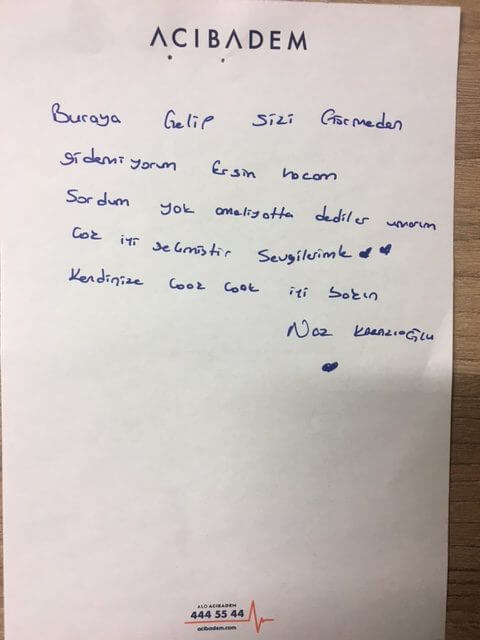 ACIBADEM
Buraya Gelip Sizi Görmeden
gidemiyorum Ersin hocam
Sordum yok ameliyatta dediler umarım
Çok iyi geçmiştir Sevgilerimle
Kendinize Çook Çook iyi bakın
Naz KARAZLIOĞLU
ALO ACIBADEM
444 55 44
acibadem.com